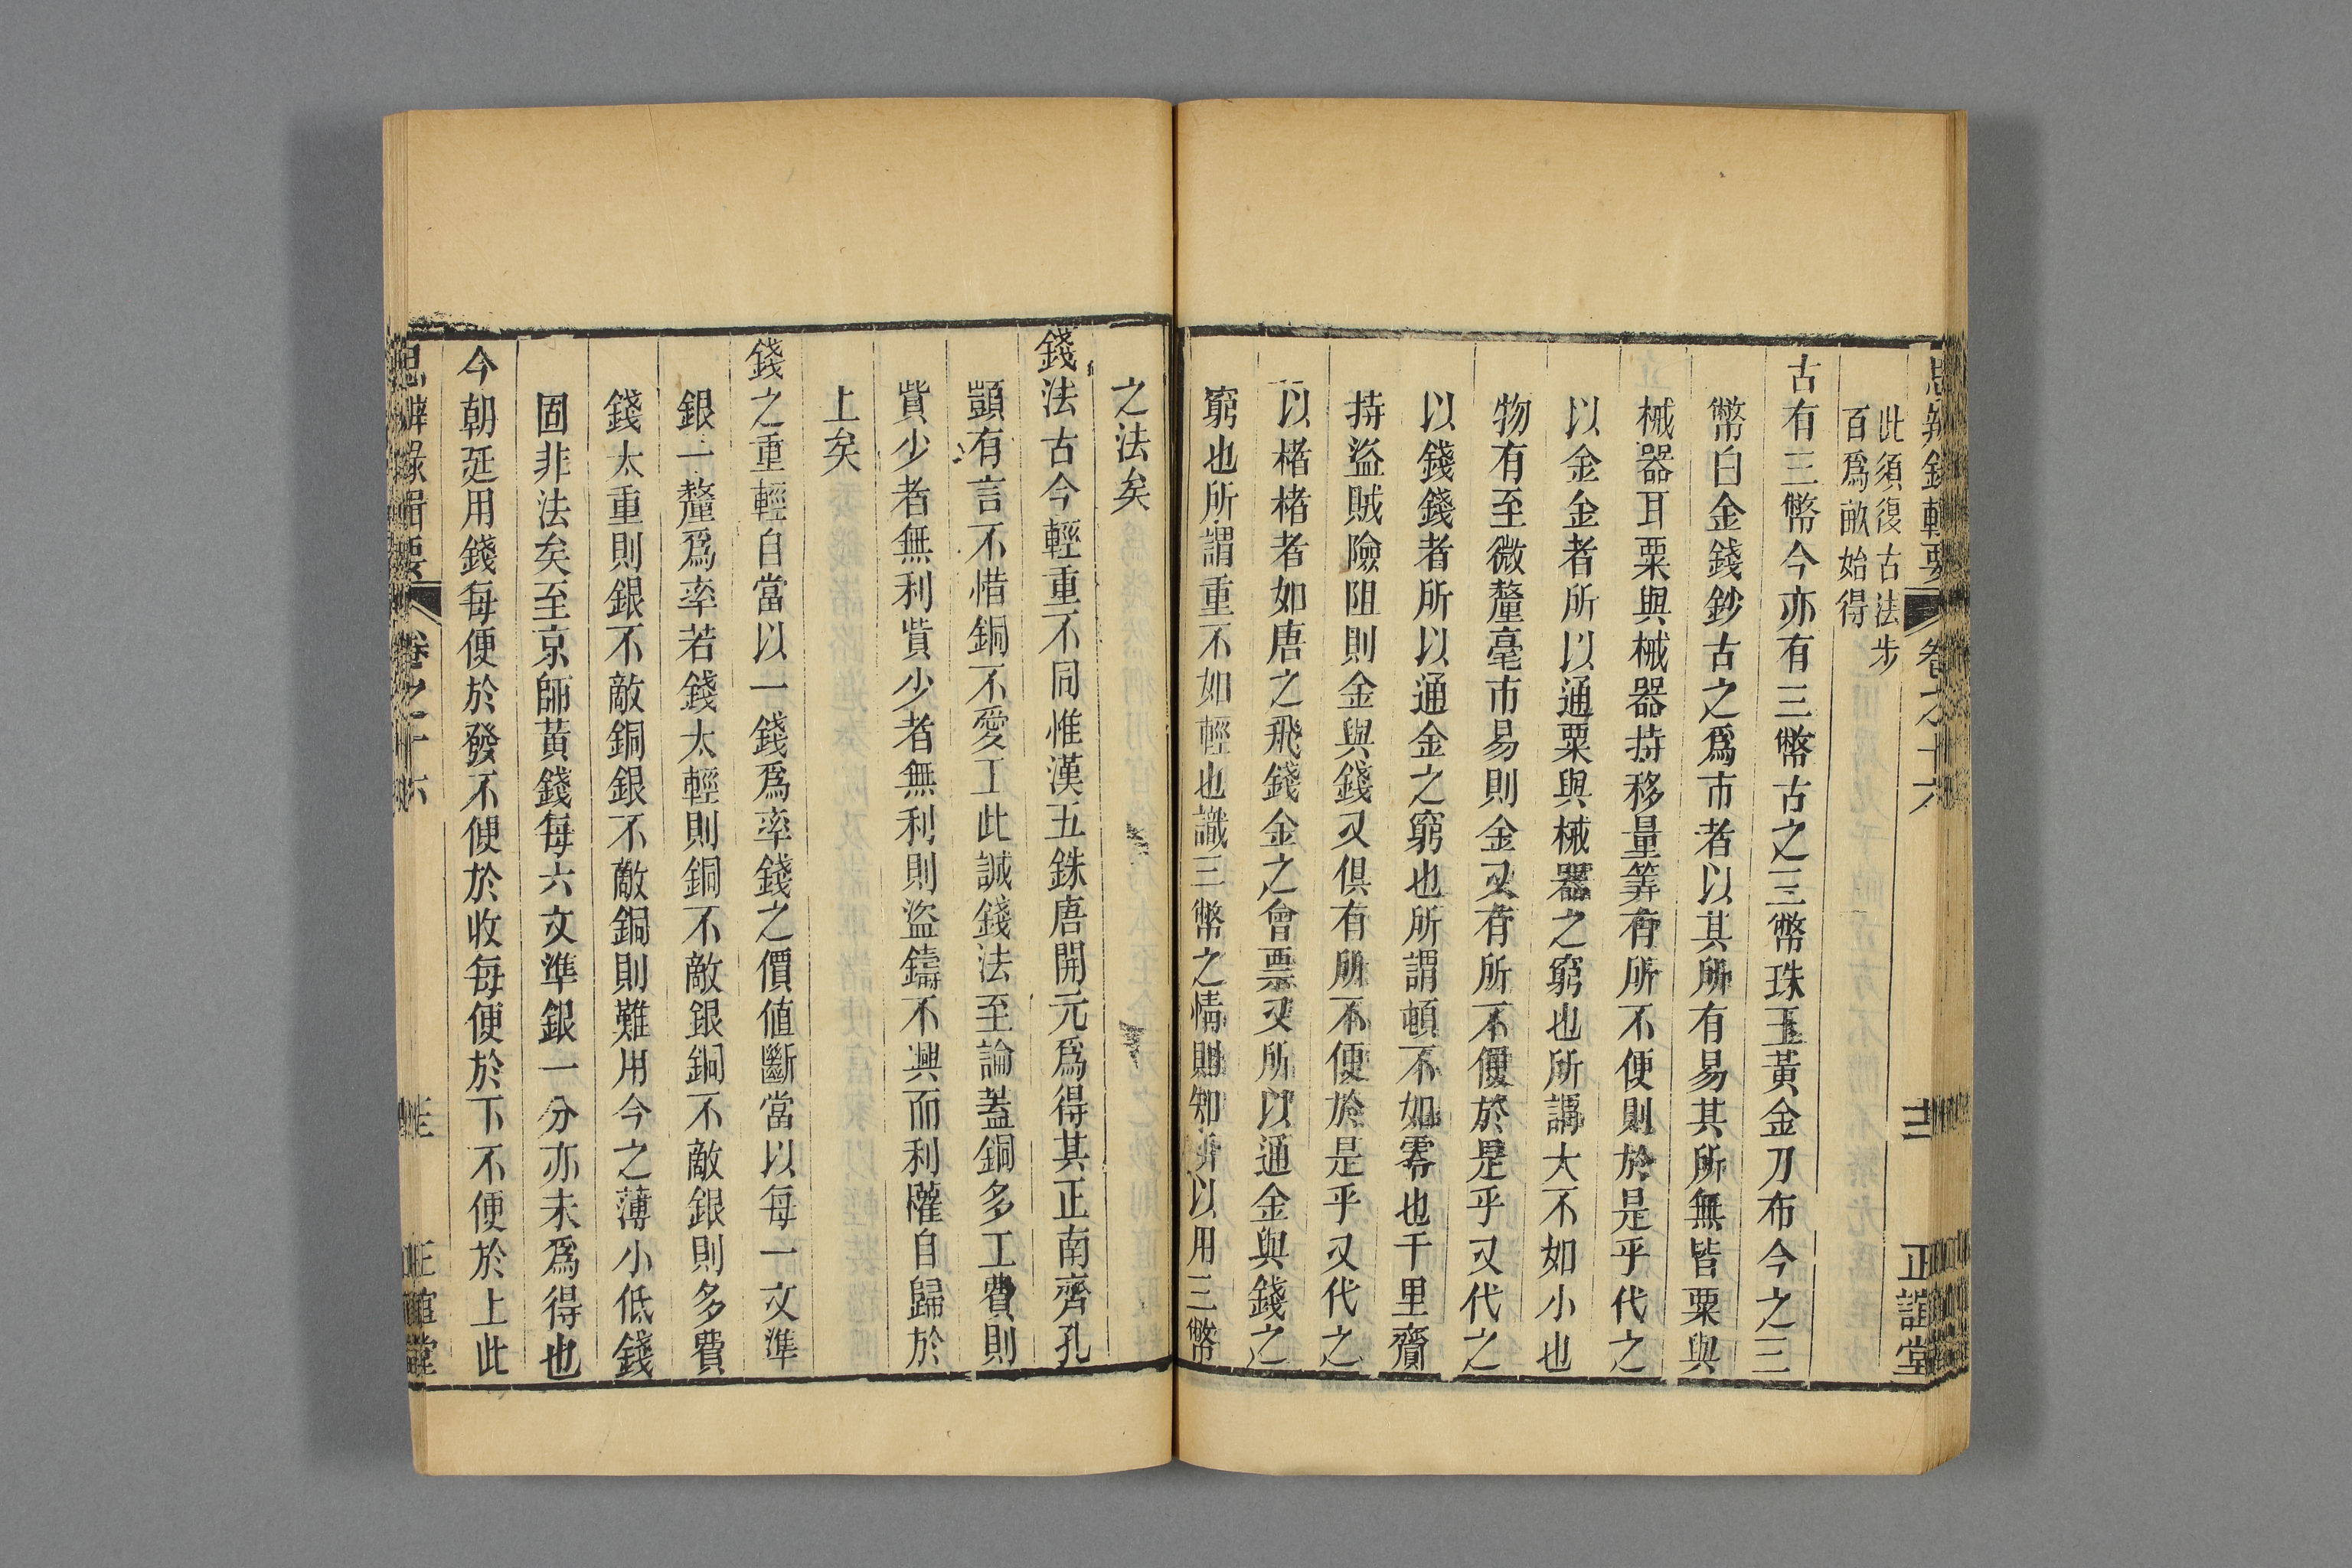 思辨錄輯要 卷之十六 正誼堂
此須復古法步
百爲畝始得
古有三幣今亦有三幣古之三幣珠玉黃金刀布今之三
幣白金錢鈔古之爲市者以其所有易其所無皆粟與
械器耳粟與械器持移量筭有所不便則於是乎代之
以金金者所以通粟與械器之窮也所謂大不如小也
物有至微釐毫市易則金又有所不便於是乎又代之
以錢錢者所以通金之窮也所謂頓不如零也千里齎
持盜賊險阻則金與錢又俱有所不便於是乎又代之
以楮楮者如唐之飛錢金之會票又所以通金與錢之
窮也所謂重不如輕也識三幣之情則知所以用三幣
之法矣
錢法古今輕重不同惟漢五銖唐開元爲得其正南齊孔
顗有言不惜銅不愛工此誠錢法至論蓋銅多工費則
貲少者無利貲少者無利則盜鑄不興而利權自歸於
上矣
錢之重輕自當以一錢爲率錢之價值斷當以每一文準
銀一釐爲率若錢太輕則銅不敵銀銅不敵銀則多費
錢太重則銀不敵銅銀不敵銅則難用今之薄小低錢
固非法矣至京師黃錢每六文準銀一分亦未爲得也
今朝廷用錢每便於發不便於收每便於下不便於上此
思辨錄輯要 卷之十六 正誼堂